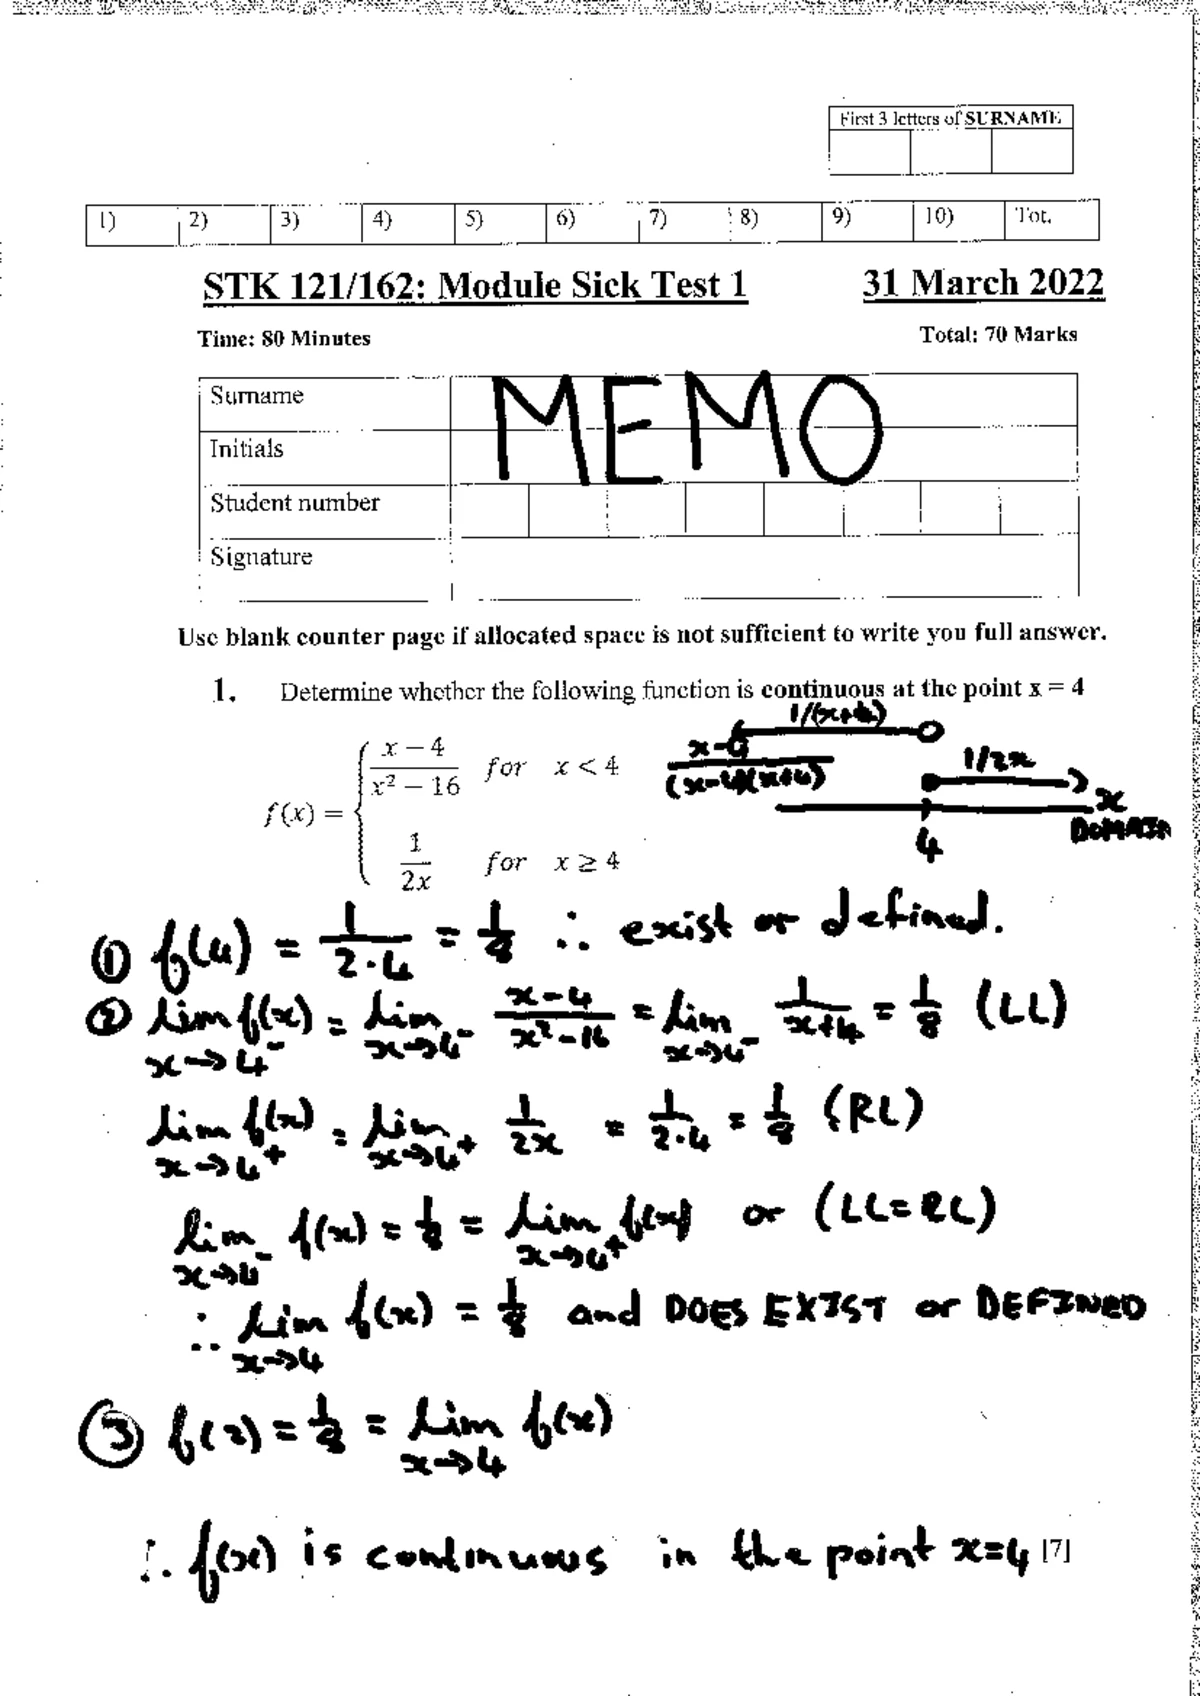 First 3 letters of SURNAME
1) 2) 3) 4) 5) 6) 7) 8) 9) 10) Tot.
STK 121/162: Module Sick Test 1 31 March 2022
Time: 80 Minutes Total: 70 Marks
Surname MEMO
Initials
Student number
Signature
Use blank counter page if allocated space is not sufficient to write you full answer.
1. Determine whether the following function is continuous at the point x = 4
1/(x+4)
x-4/(x-4)(x+4)
1/2x
x
DOMAIN
4
f(x) = { x − 4 / x² − 16 for x < 4
1 / 2x for x ≥ 4
① f(4) = 1/2·4 = 1/8 ∴ exist or defined.
② lim x→4⁻ f(x) = lim x→4⁻ x-4/x²-16 = lim x→4⁻ 1/x+4 = 1/8 (LL)
lim x→4⁺ f(x) = lim x→4⁺ 1/2x = 1/2·4 = 1/8 (RL)
lim x→4⁻ f(x) = 1/8 = lim x→4⁺ f(x) or (LL=RL)
∴ lim x→4 f(x) = 1/8 and DOES EXIST or DEFINED
③ f(2) = 1/8 = lim x→4 f(x)
∴ f(x) is continuous in the point x=4 [7]